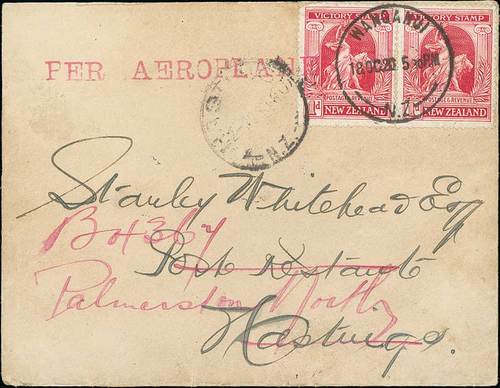 VICTORY STAMP VICTORY STAMP
WANGANUI
18 OC 20 5
N.Z.
POSTAGE & REVENUE
NEW ZEALAND NEW ZEALAND
PER AEROPLANE
N.Z.
Stanley Whitehead Esq
Box 367
Post Restante
Palmerston North
Hastings.